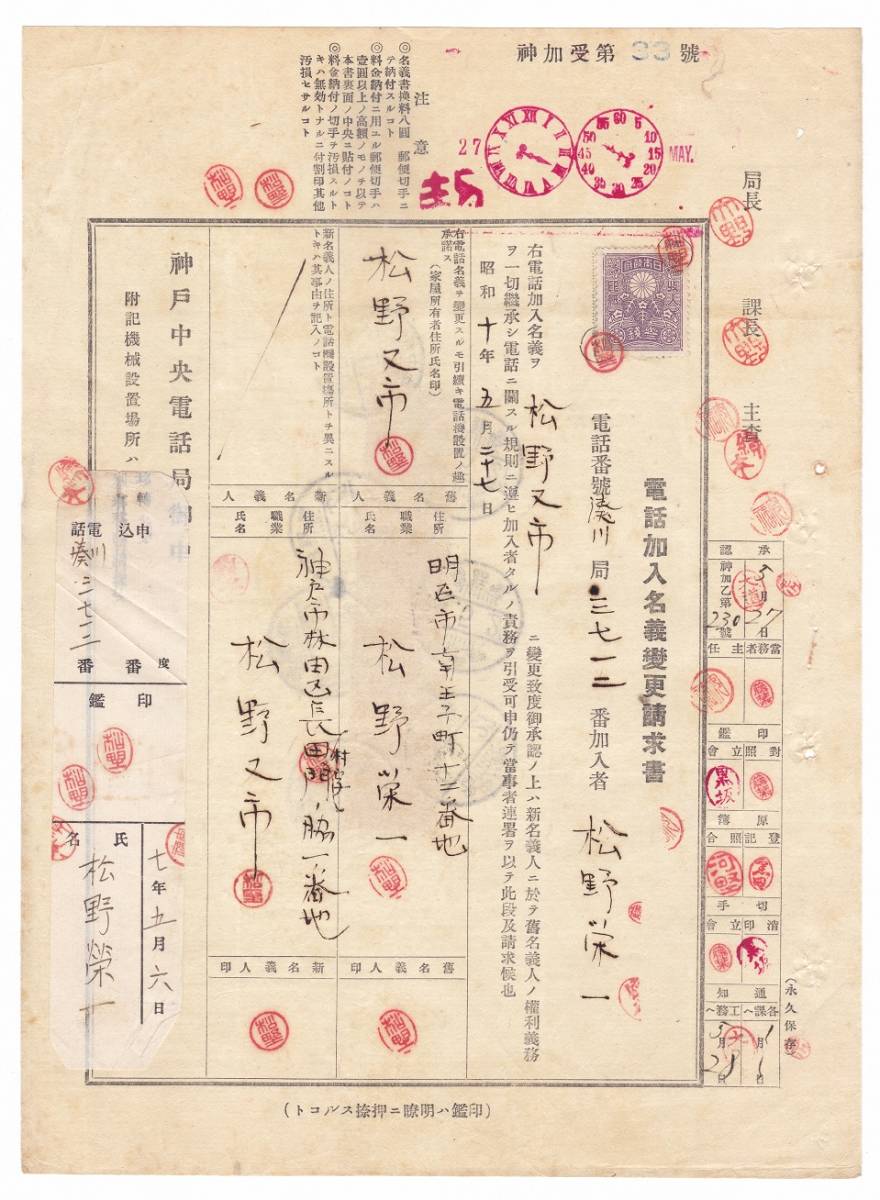 神加受第33號
注意
◎名義書換料八圓 郵便切手ニ
テ納付スルコト
◎料金納付ニ用ユル郵便切手ハ
壹圓以上ノ高額ノモノヲ以テ
本書裏面ノ中央ニ貼付ノコト
◎料金納付ノ切手ヲ汚損スルト
キハ無効トナルニ付割印其他
汚損セサルコト
27
XII I II III
60 5 10 15 20 25 30 35 40 45 50 55
MAY.
局長
課長
主査
電話加入名義變更請求書
電話番號湊川局三七一二番加入者 松野栄一
右電話加入名義ヲ 松野又市 ニ變更致度御承認ノ上ハ新名義人ニ於テ舊名義人ノ權利義務
ヲ一切繼承シ電話ニ關スル規則ニ遵ヒ加入者タルノ責務ヲ引受可申仍テ當事者連署ヲ以テ此段及請求候也
昭和十年五月二十七日
舊名義人
住所
職業
氏名
明石市南王子町十二番地
松野栄一
舊名義人印
新名義人
住所
職業
氏名
神戸市林田区長田町
脇一番地
松野又市
新名義人印
右電話名義ヲ變更スルモ引續キ電話機設置ノ趣
承諾ス
(家屋所有者住所氏名印)
松野又市
新名義人ノ住所ト電話機設置場所トヲ異ニスル
トキハ其事由ヲ記入ノコト
神戸中央電話局御中
附記機械設置場所ハ
申込電話
湊川三七一二
番
番
度
印鑑
氏名
七年五月六日
松野榮一
承認
5月27日
神加乙第230號
當務者 主任
印鑑
對照 立會
原簿
登記 照合
切手
消印 立會
通知
各課ヘ 工務ヘ
1月
5月28日
(永久保存)
(印鑑ハ明瞭ニ押捺スルコト)